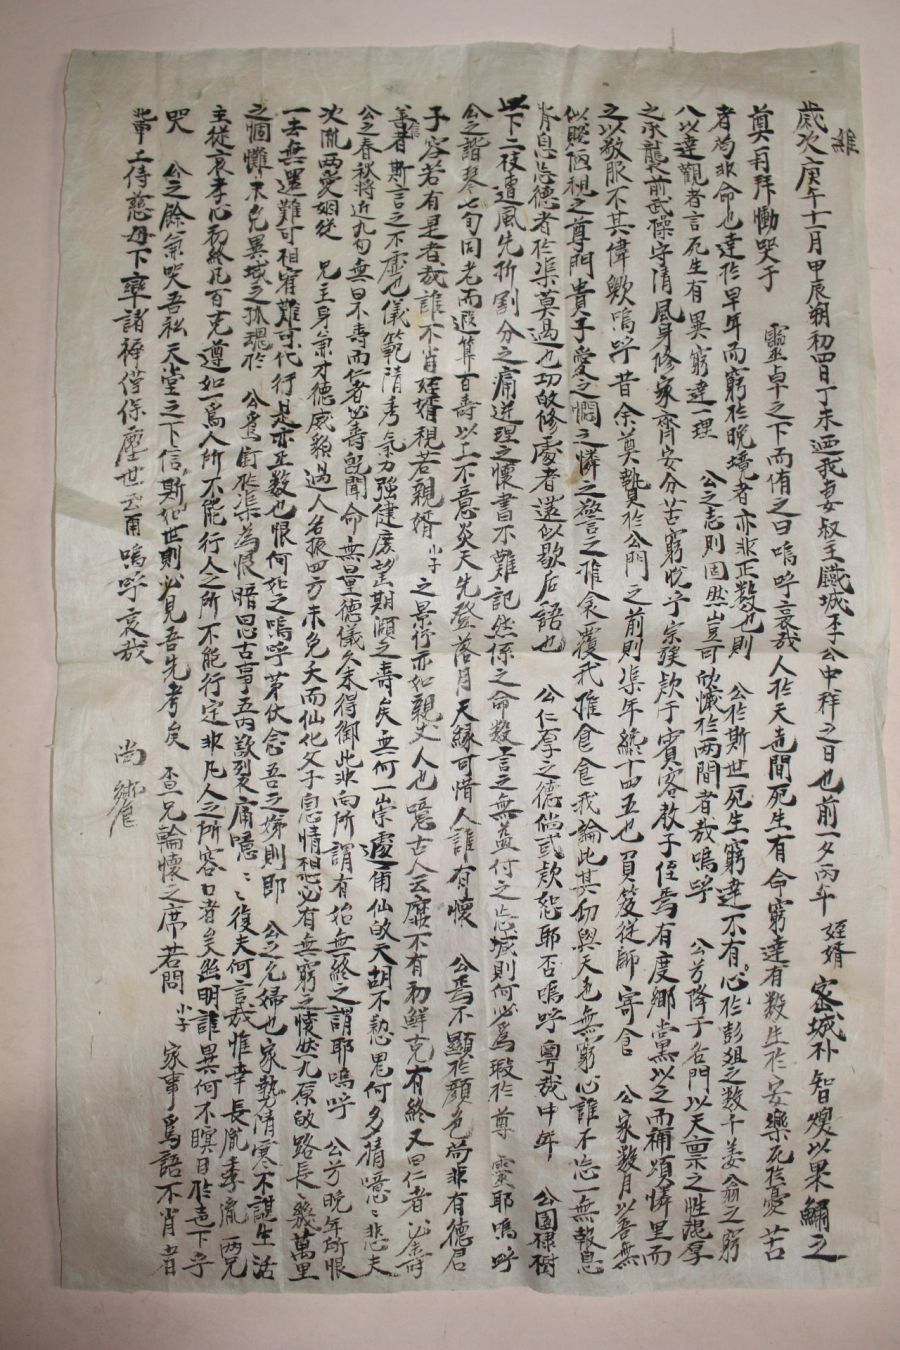 維
歲次庚午十一月甲辰朔初四日丁未迺我妻叔主鐵城李公中祥之日也前一夕丙午 姪婿 密城朴智煥以果鱐之
奠再拜慟哭于 靈卓之下而侑之曰嗚呼哀哉人於天壴間死生有命窮達有数生於安樂死於憂苦
者尙非命也達於早年而窮於晩境者亦非正數也則 公於斯世死生窮達不有心於彭祖之数千姜翁之窮
八以達觀者言死生有異窮達一理 公之志則固然豈可欣慽於两間者哉嗚呼 公芳降于名門以天禀之性混厚
之承襲前武操守清風身修家齊安分苦窮悅乎宗族欵于賓客教子侄焉有度鄕黨以之而稱頌憐里而
之以敬服不其偉歟嗚呼昔余奠贄於公門之前則渠年纔十四五也負笈從師寄食 公家数月以善無
似貶 祖之尊門貴子愛之憫之憐之警之推衾覆我推食食我論此其劬與天壴無窮心誰不忘一無報息
背息忘德者於渠莫過也功敀修慶者還似歇后語也 公仁厚之德倘或欵恕耶否嗚呼粤哉中年 公園棣樹
下二枝遭風先折割分之痛逆理之懷書不難記然係之命数言之無益付之忘域則何必爲瑕於尊 靈耶嗚呼
公之諧琴七旬同老而遐算百壽以上不意炎天先登落月天緣可惜人誰有懷 公焉不顯於顔色尙非有德君
子容若有是者哉誰不肖姪婿視若親婿 小子 之景仰亦如親丈人也噫古人云靡不有初鮮克有終又曰仁者必壽
善者斯言之不虛也儀範清秀氣力強健庶望期頤之壽矣無何一祟遽甭仙敀天胡不憖鬼何多猜噫噫悲夫
公之春秋將近九旬無曰不壽而仁者必壽旣聞命無量德儀久未得御此非向所謂有始無終之謂耶嗚呼 公兮晩年所眼
次胤两愛姻從 兄主身氣才德威貌過人名振四方未免夭而仙化父子忘情想必有無窮之悽然九原敀路長幾萬里
一去無還難可相宥難可代行是亦正数也恨何於之嗚呼第伏念吾之娣則即 公之冗婦也家勢清寒不謀生活
之恫懽未免異域之孤魂於 公爲 於渠爲恨暗思古事五内欲裂痛噫噫復夫何言哉惟幸長胤季胤两兄
主從哀孝心初終凡百克遵如一爲人所不能行人之所不能行定非凡人之所容口者矣幽明誰異何不瞑目於壴下乎
哭 公之餘氣哭吾私天堂之下信斯他世則必見吾先考矣 查兄輪懷之席若問 小子 家事爲語不肖者
軰上侍慈母下率諸稚僅保塵世云甭嗚呼哀哉 尙饗